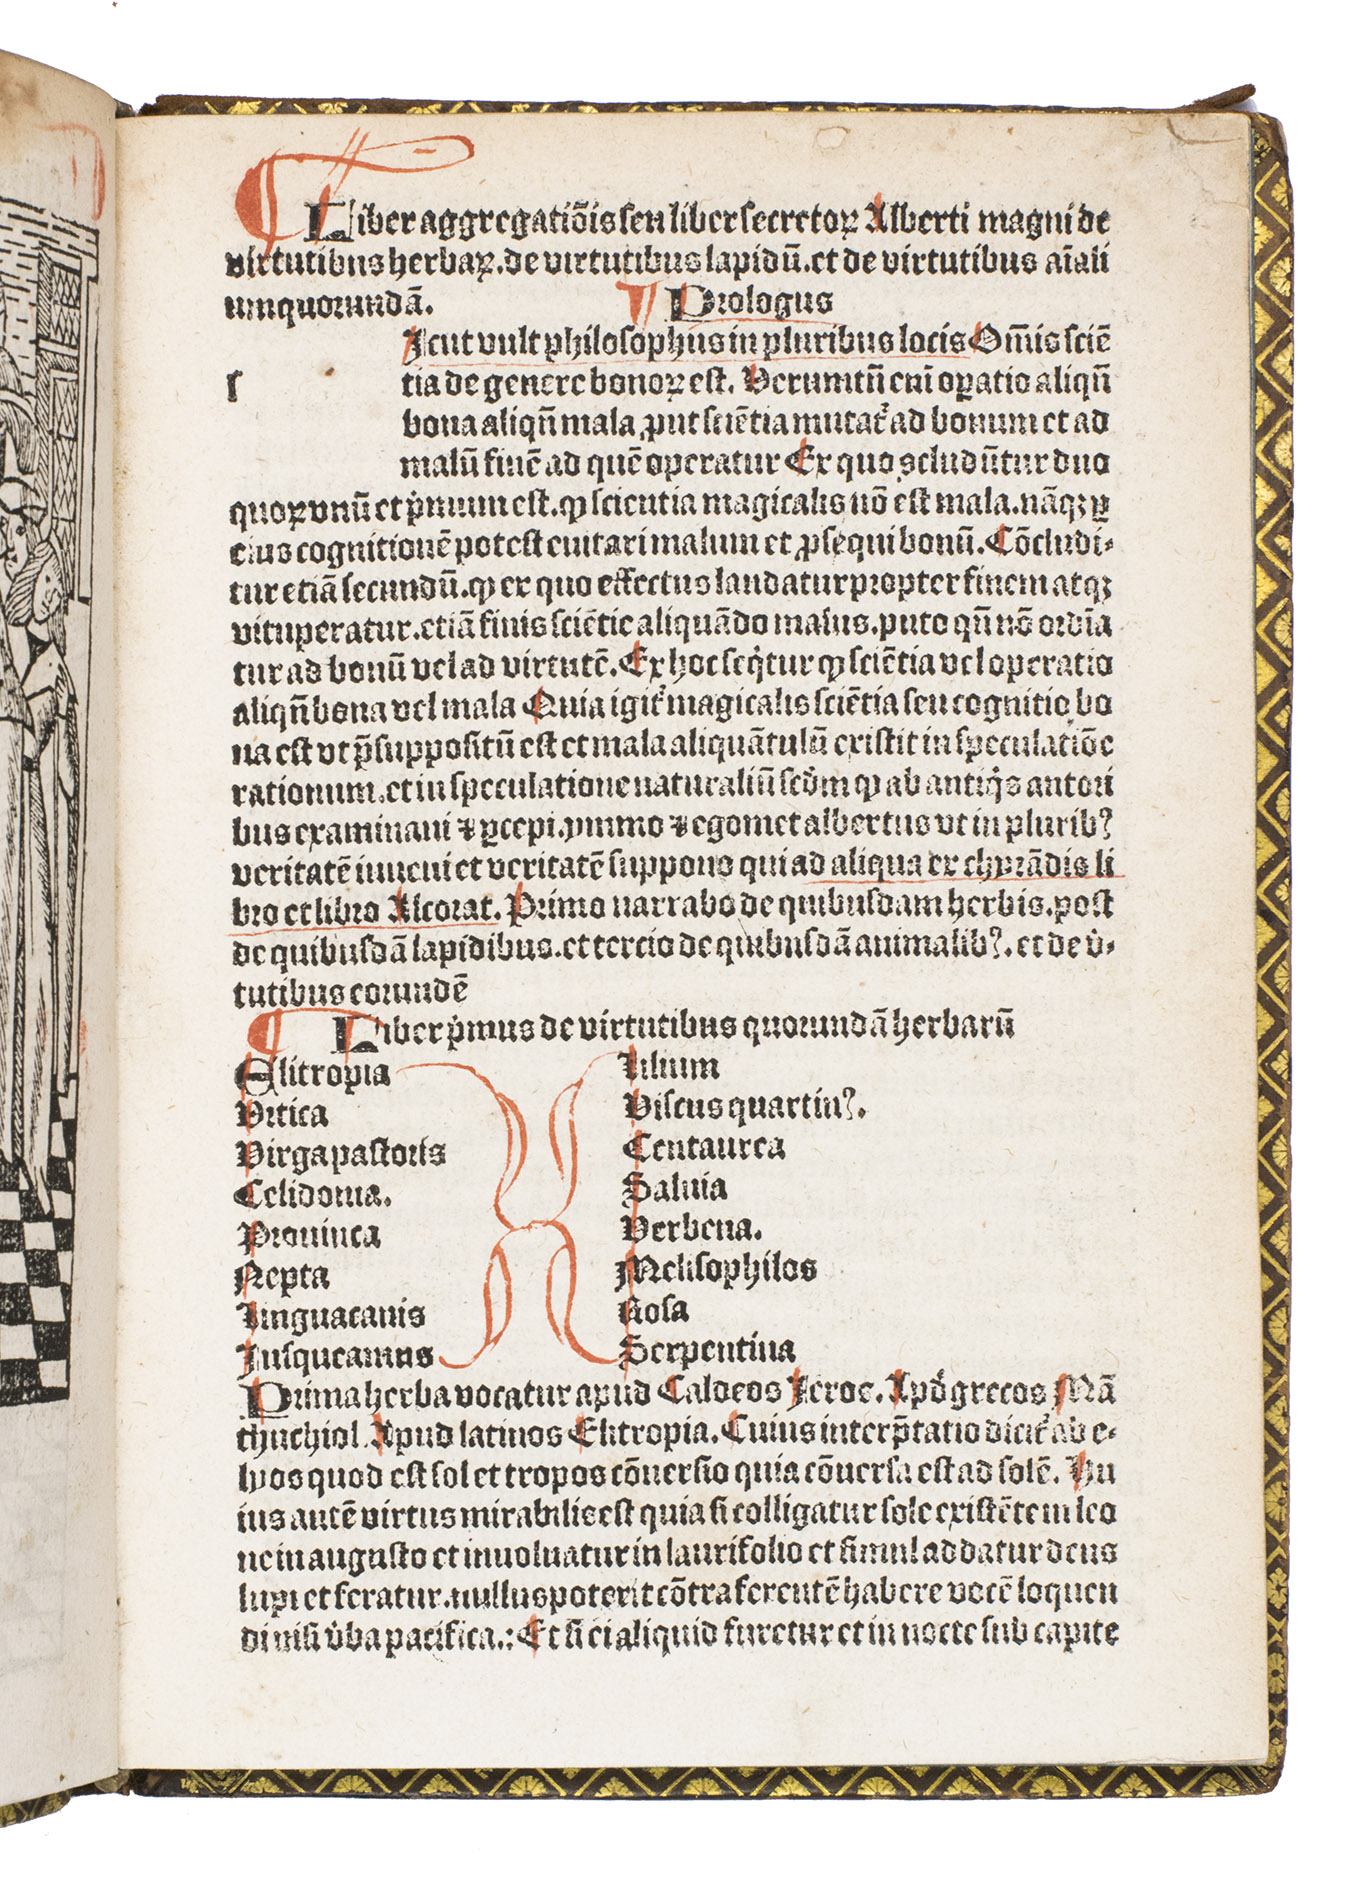 Liber aggregatiōis seu liber secretoꝝ Alberti magni de
virtutibus herbaꝝ. de virtutibus lapidū. et de virtutibus aīali
umquorundā. ¶ Prologus
Icut vult philosophus in pluribus locis Om̄is sciē
ſ tia de genere bonoꝝ est. Verumtn̄ eni oꝑatio aliqn̄
bona aliqn̄ mala ꝓut sciētia mutat᷑ ad bonum et ad
malū finē ad quē operatur Ex quo ꝯcludūtur duo
quoꝝ vnū et pͥmum est. ꝙ scientia magicalis nō est mala. nāqꝫ ꝑ
eius cognitionē potest euitari malum et ꝓsequi bonū. Cōcludi⸗
tur etiā secundū. ꝙ ex quo effectus laudatur propter finem atqꝫ
vituperatur. etiā finis sciētie aliquādo malus. puto qn̄ nō ordīa
tur ad bonū vel ad virtutē. Ex hoc seqͥtur ꝙ sciētia vel operatio
aliqn̄ bona vel mala Quia igit᷑ magicalis sciētia seu cognitio bo
na est vt p̄suppositū est et mala aliquātulū existit in speculatiōe
rationum. et in speculatione naturaliū scd̓m ꝙ ab antiqͥs autori
bus examinaui ⁊ ꝑcepi. ymmo ⁊ egomet albertus vt in pluribꝰ
veritatē inueni et veritatē suppono qui ad aliqua ex chyrādis li
bro et libro Alcorat. Primo narrabo de quibusdam herbis. post
de quibusdā lapidibus. et tercio de quibusdā animalibꝰ. et de v̓⸗
tutibus eorundē
¶ Liber pͥmus de virtutibus quorundā herbarū
Elitropia Lilium
Vrtica Viscus quartinꝰ.
Virga pastoris Centaurea
Celidonia. Saluia
Prouinca Verbena.
Nepta Melisophilos
Lingua canis Rosa
Iusqueamus Serpentina
Prima herba vocatur apud Caldeos Ieroc. Apd̓ grecos Mā
thuchiol. Apud latinos Elitropia. Cuius interp̄tatio dicit᷑ ab e⸗
lyos quod est sol et tropos cōuersio quia cōuersa est ad solē. Hu
ius autē virtus mirabilis est quia si colligatur sole existēte in leo
ne in augusto et inuoluatur in lauri folio et simul addatur dens
lupi et feratur. nullus poterit cōtra ferentē habere vocē loquen
di nisi v̓ba pacifica.: Et si ei aliquid furetur et in nocte sub capite